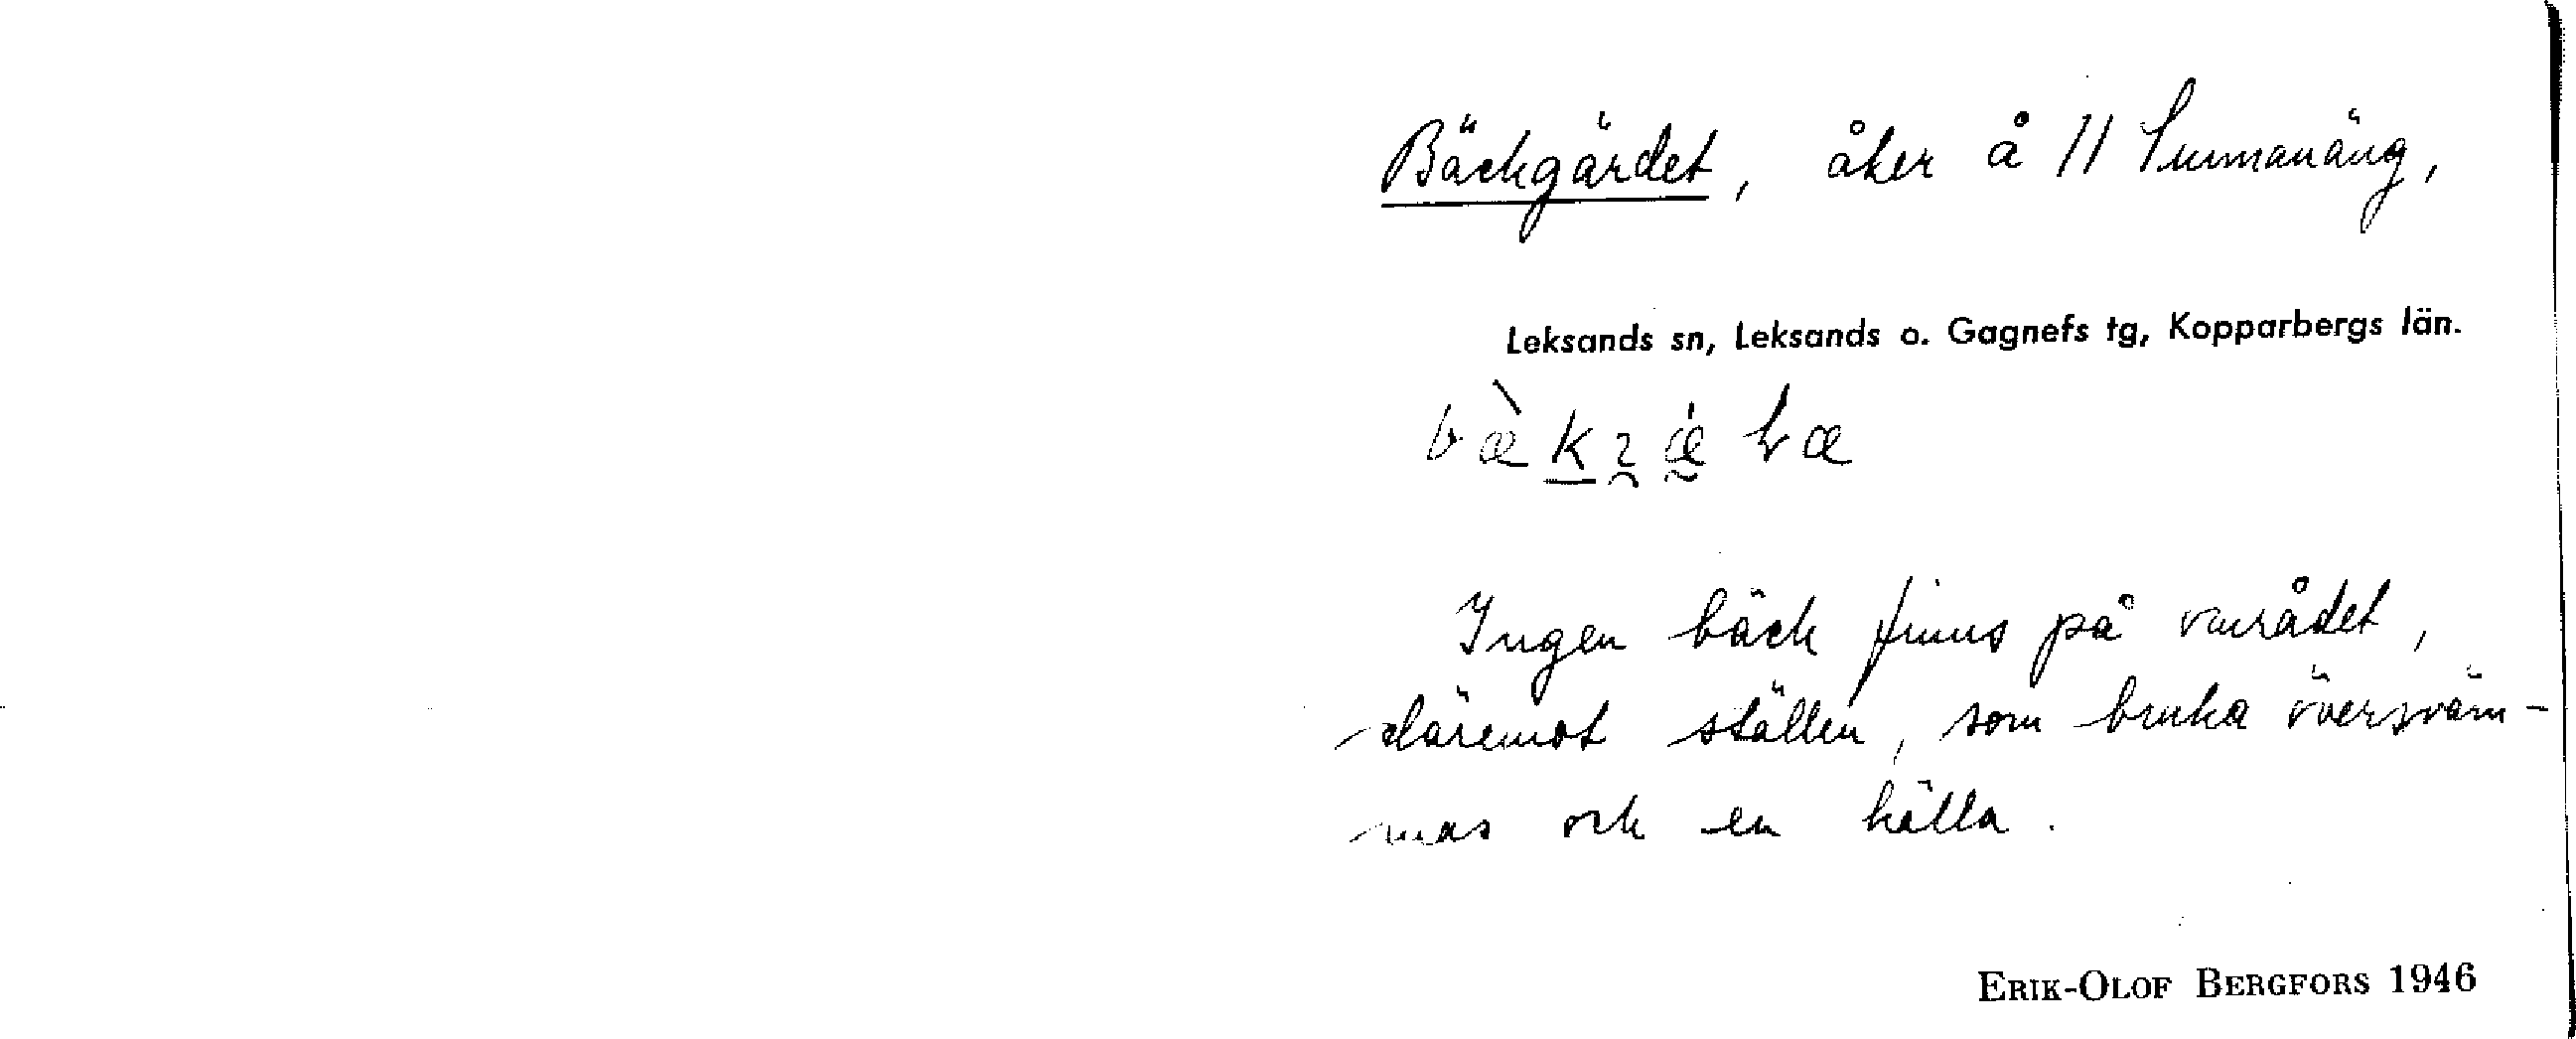 Bäckgärdet, åker å 11 Sunnanäng,
Leksands sn, Leksands o. Gagnefs tg, Kopparbergs län.
Ingen bäck finns på området,
däremot ställen, som bruka översväm-
mas och en källa.
ERIK-OLOF BERGFORS 1946